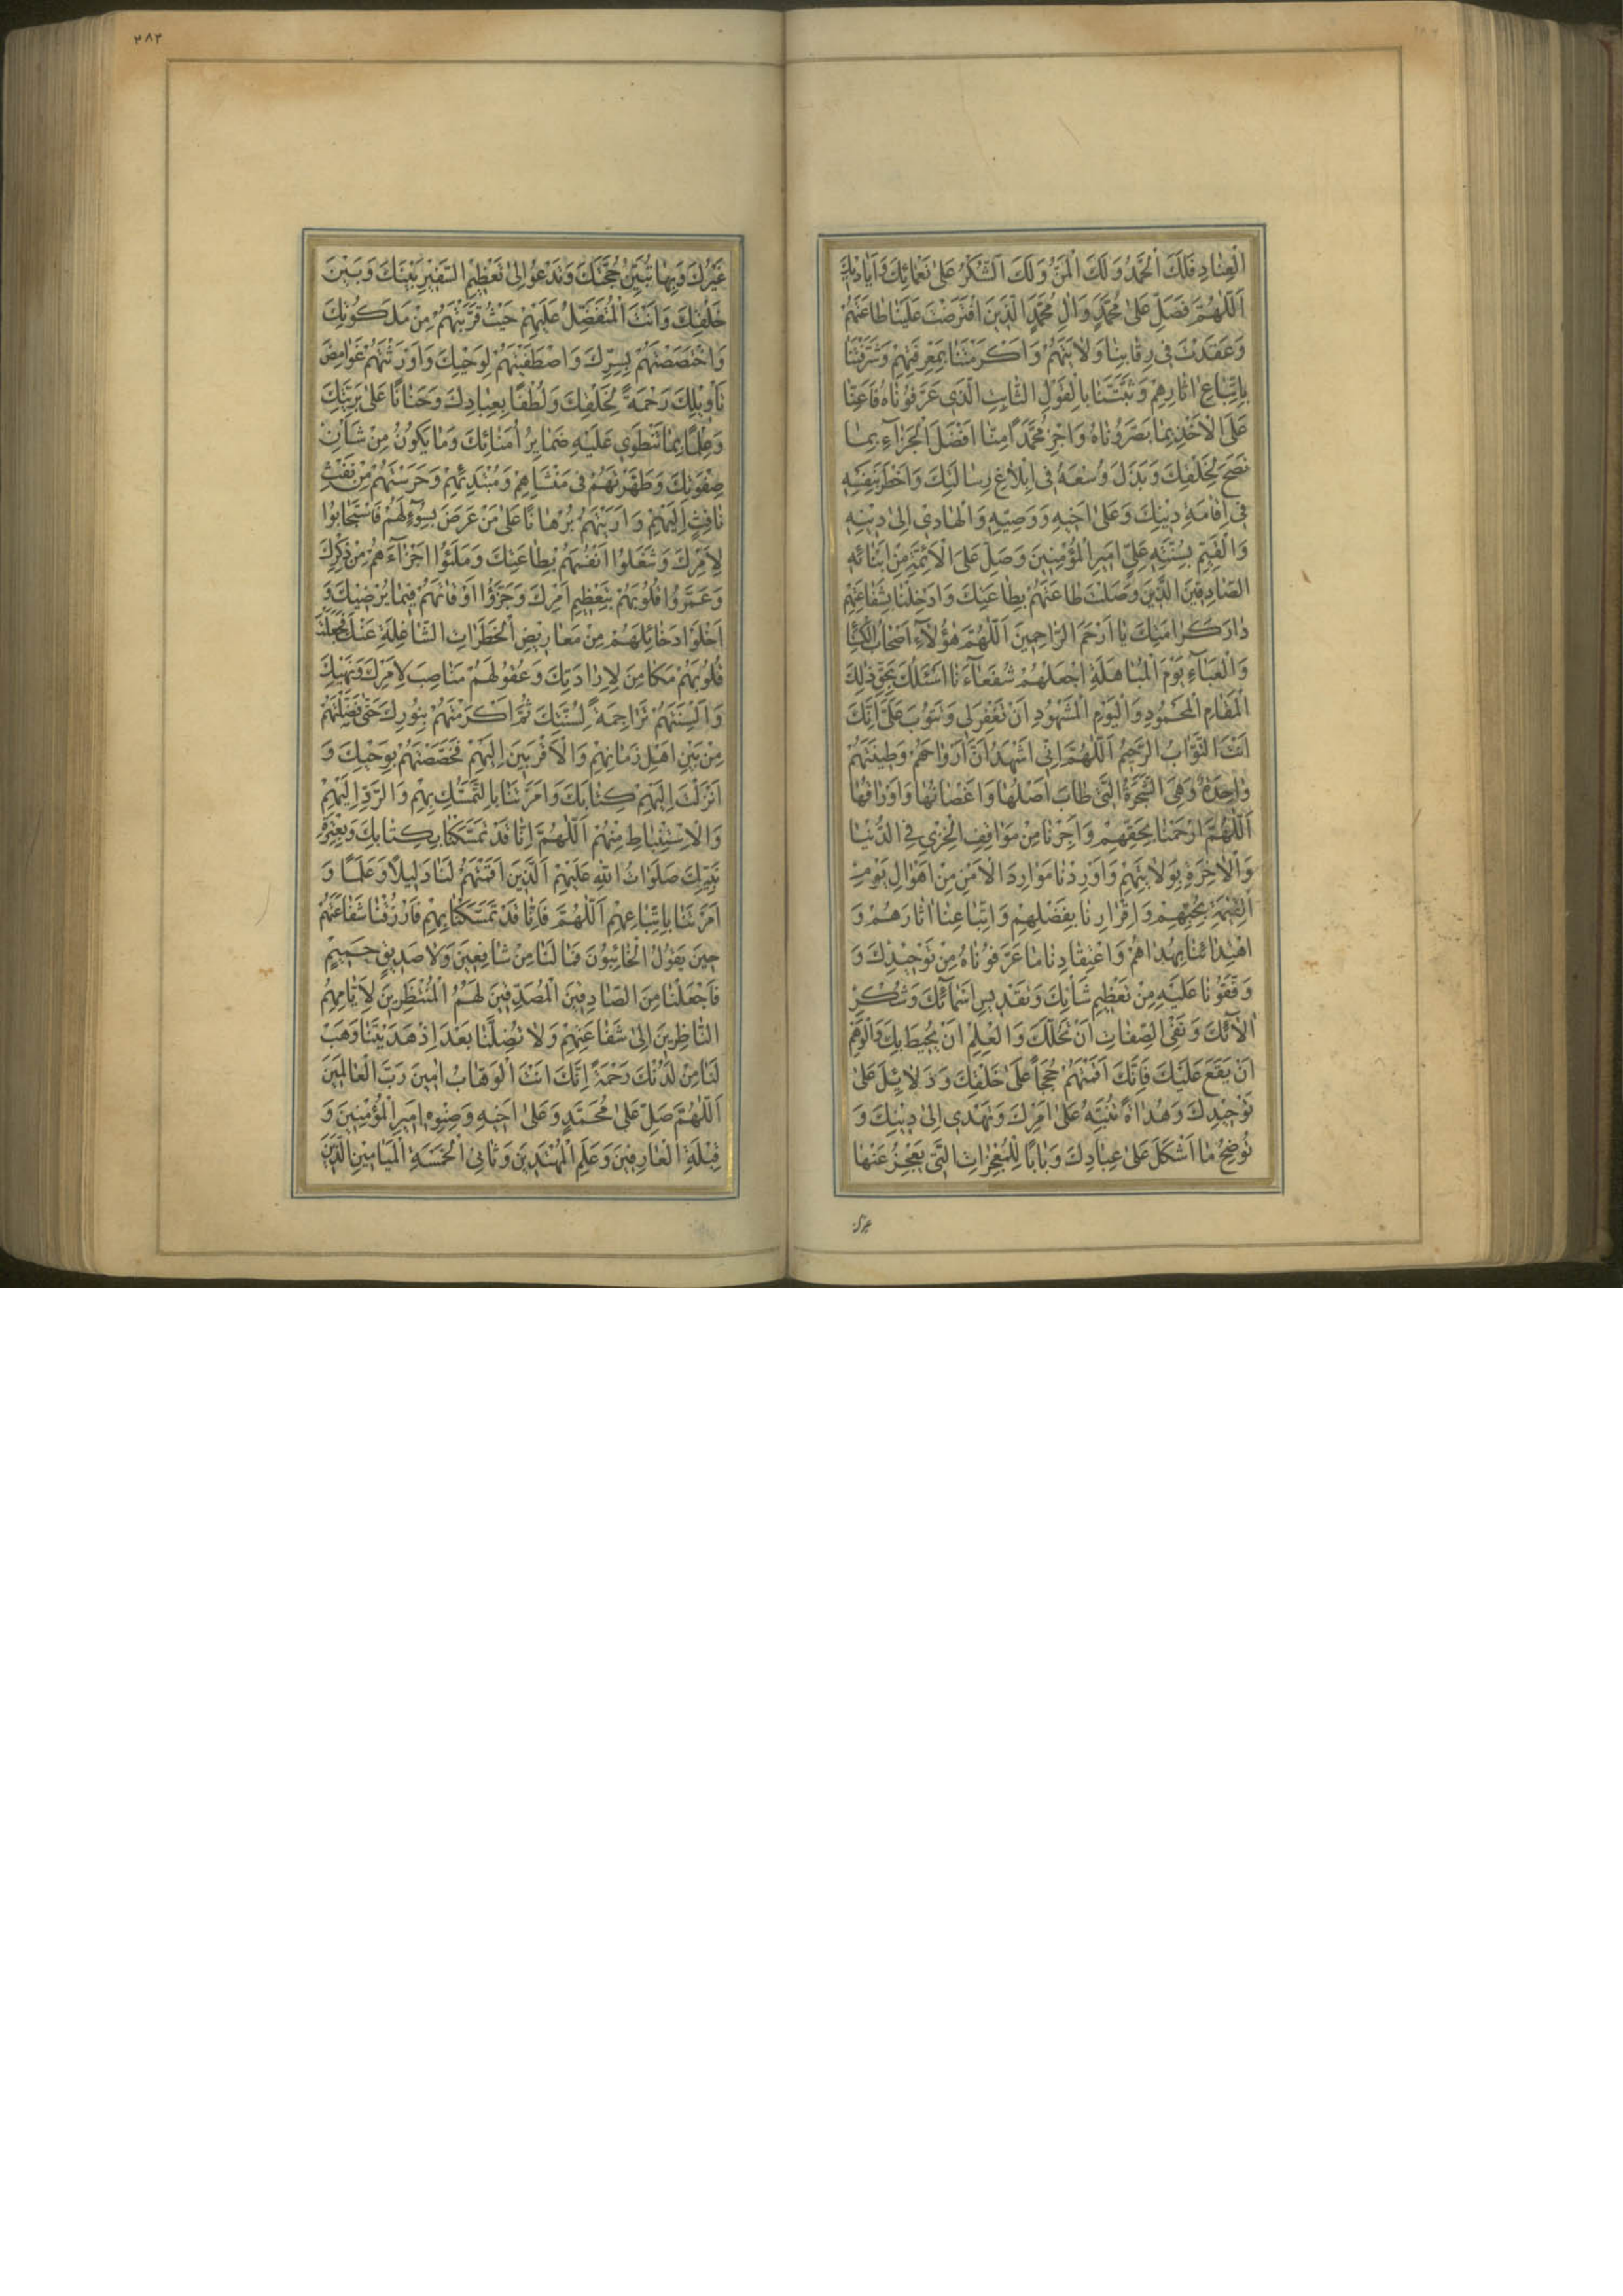 الْعِنَادِ فَلَكَ الْحَمْدُ وَلَكَ الْمَنُّ وَلَكَ الشُّكْرُ عَلَىٰ نَعْمَائِكَ وَاَيَادِيكَ
اَللّٰهُمَّ فَصَلِّ عَلَىٰ مُحَمَّدٍ وَاٰلِ مُحَمَّدٍ الَّذِينَ افْتَرَضْتَ عَلَيْنَا طَاعَتَهُمْ
وَعَقَدْتَ فِي رِقَابِنَا وَلَايَتَهُمْ وَاَكْرَمْتَنَا بِمَعْرِفَتِهِمْ وَشَرَّفْتَنَا
بِاتِّبَاعِ اٰثَارِهِمْ وَثَبَّتَّنَا بِالْقَوْلِ الثَّابِتِ الَّذِي عَرَّفُونَاهُ فَاَعِنَّا
عَلَى الْاَخْذِ بِمَا بَصَّرُونَاهُ وَاجْزِ مُحَمَّدًا مِنَّا اَفْضَلَ الْجَزَآءِ بِمَا
نَصَحَ لِخَلْقِكَ وَبَذَلَ وُسْعَهُ فِي اِبْلَاغِ رِسَالَتِكَ وَاَخْطَرَ بِنَفْسِهِ
فِي اِقَامَةِ دِينِكَ وَعَلَىٰ اَخِيهِ وَوَصِيِّهِ وَالْهَادِي اِلَىٰ دِينِهِ
وَالْقَيِّمِ بِسُنَّتِهِ عَلِيٍّ اَمِيرِ الْمُؤْمِنِينَ وَصَلِّ عَلَى الْاَئِمَّةِ مِنْ اَبْنَائِهِ
الصَّادِقِينَ الَّذِينَ وَصَلْتَ طَاعَتَهُمْ بِطَاعَتِكَ وَاَدْخِلْنَا بِشَفَاعَتِهِمْ
دَارَ كَرَامَتِكَ يَا اَرْحَمَ الرَّاحِمِينَ اَللّٰهُمَّ هٰؤُلَآءِ اَصْحَابُ الْكِسَا
وَالْعَبَآءِ يَوْمَ الْمُبَاهَلَةِ اجْعَلْهُمْ شُفَعَآءَنَا اَسْئَلُكَ بِحَقِّ ذٰلِكَ
الْمَقَامِ الْمَحْمُودِ وَالْيَوْمِ الْمَشْهُودِ اَنْ تَغْفِرَ لِي وَتَتُوبَ عَلَيَّ اِنَّكَ
اَنْتَ التَّوَّابُ الرَّحِيمُ اَللّٰهُمَّ اِنِّي اَشْهَدُ اَنَّ اَرْوَاحَهُمْ وَطِينَتَهُمْ
وَاحِدَةٌ وَهِيَ الشَّجَرَةُ الَّتِي طَابَ اَصْلُهَا وَاَغْصَانُهَا وَاَوْرَاقُهَا
اَللّٰهُمَّ ارْحَمْنَا بِحَقِّهِمْ وَاَجِرْنَا مِنْ مَوَاقِفِ الْخِزْيِ فِي الدُّنْيَا
وَالْاٰخِرَةِ بِوَلَايَتِهِمْ وَاَوْرِدْنَا مَوَارِدَ الْاَمْنِ مِنْ اَهْوَالِ يَوْمِ
الْقِيٰمَةِ بِحُبِّهِمْ وَاِقْرَارِنَا بِفَضْلِهِمْ وَاتِّبَاعِنَا اٰثَارَهُمْ وَ
اهْتِدَائِنَا بِهُدَاهُمْ وَاعْتِقَادِنَا مَا عَرَّفُونَاهُ مِنْ تَوْحِيدِكَ وَ
وَقَّفُونَا عَلَيْهِ مِنْ تَعْظِيمِ شَأْنِكَ وَتَقْدِيسِ اَسْمَائِكَ وَشُكْرِ
اٰلَائِكَ وَنَفْيِ الصِّفَاتِ اَنْ تَحُلَّكَ وَالْعِلْمِ اَنْ يُحِيطَ بِكَ وَالْوَهْمِ
اَنْ يَقَعَ عَلَيْكَ فَاِنَّكَ اَقَمْتَهُمْ حُجَجًا عَلَىٰ خَلْقِكَ وَدَلَائِلَ عَلَىٰ
تَوْحِيدِكَ وَهُدَاةً تُنَبِّهُ عَلَىٰ اَمْرِكَ وَتَهْدِي اِلَىٰ دِينِكَ وَ
تُوضِحُ مَا اَشْكَلَ عَلَىٰ عِبَادِكَ وَبَابًا لِلْمُعْجِزَاتِ الَّتِي يَعْجِزُ عَنْهَا
غيرك
٢٨٣
غَيْرُكَ وَبِهَا تُبَيِّنُ حُجَّتَكَ وَتَدْعُو اِلَىٰ تَعْظِيمِ السَّفِيرِ بَيْنَكَ وَبَيْنَ
خَلْقِكَ وَاَنْتَ الْمُتَفَضِّلُ عَلَيْهِمْ حَيْثُ قَرَّبْتَهُمْ مِنْ مَلَكُوتِكَ
وَاخْتَصَصْتَهُمْ بِسِرِّكَ وَاصْطَفَيْتَهُمْ لِوَحْيِكَ وَاَوْرَثْتَهُمْ غَوَامِضَ
تَأْوِيلِكَ رَحْمَةً لِخَلْقِكَ وَلُطْفًا بِعِبَادِكَ وَحَنَانًا عَلَىٰ بَرِيَّتِكَ
وَعِلْمًا بِمَا تَنْطَوِي عَلَيْهِ ضَمَايِرُ اُمَنَائِكَ وَمَا يَكُونُ مِنْ شَأْنِ
صِفْوَتِكَ وَطَهَّرْتَهُمْ فِي مَنْشَاهِمْ وَمُبْتَدَئِهِمْ وَحَرَسْتَهُمْ مِنْ نَفْثِ
نَافِثٍ اِلَيْهِمْ وَاَرَيْتَهُمْ بُرْهَانًا عَلَىٰ مَنْ عَرَضَ بِسُوٓءٍ لَهُمْ فَاسْتَجَابُوا
لِاَمْرِكَ وَشَغَلُوا اَنْفُسَهُمْ بِطَاعَتِكَ وَمَلَئُوا اَجْزَآءَهُمْ مِنْ ذِكْرِكَ
وَعَمَّرُوا قُلُوبَهُمْ بِتَعْظِيمِ اَمْرِكَ وَجَزَّؤُا اَوْقَاتَهُمْ فِيمَا يُرْضِيكَ وَ
اَخْلَوْا دَخَائِلَهُمْ مِنْ مَعَارِيضِ الْخَطَرَاتِ الشَّاغِلَةِ عَنْكَ فَجَعَلْتَ
قُلُوبَهُمْ مَكَامِنَ لِاِرَادَتِكَ وَعُقُولَهُمْ مَنَاصِبَ لِاَمْرِكَ وَنَهْيِكَ
وَاَلْسِنَتَهُمْ تَرَاجِمَةً لِسُنَّتِكَ ثُمَّ اَكْرَمْتَهُمْ بِنُورِكَ حَتّٰى فَضَّلْتَهُمْ
مِنْ بَيْنِ اَهْلِ زَمَانِهِمْ وَالْاَقْرَبِينَ اِلَيْهِمْ فَخَصَصْتَهُمْ بِوَحْيِكَ وَ
اَنْزَلْتَ اِلَيْهِمْ كِتَابَكَ وَاَمَرْتَنَا بِالتَّمَسُّكِ بِهِمْ وَالرَّدِّ اِلَيْهِمْ
وَالْاِسْتِنْبَاطِ مِنْهُمْ اَللّٰهُمَّ اِنَّا قَدْ تَمَسَّكْنَا بِكِتَابِكَ وَبِعِتْرَةِ
نَبِيِّكَ صَلَوَاتُ اللّٰهِ عَلَيْهِمْ الَّذِينَ اَقَمْتَهُمْ لَنَا دَلِيلًا وَعَلَمًا وَ
اَمَرْتَنَا بِاتِّبَاعِهِمْ اَللّٰهُمَّ فَاِنَّا قَدْ تَمَسَّكْنَا بِهِمْ فَارْزُقْنَا شَفَاعَتَهُمْ
حِينَ يَقُولُ الْخَائِبُونَ فَمَا لَنَا مِنْ شَافِعِينَ وَلَا صَدِيقٍ حَمِيمٍ
فَاجْعَلْنَا مِنَ الصَّادِقِينَ الْمُصَدِّقِينَ لَهُمُ الْمُنْتَظِرِينَ لِاَيَّامِهِمْ
النَّاظِرِينَ اِلَىٰ شَفَاعَتِهِمْ وَلَا تُضِلَّنَا بَعْدَ اِذْ هَدَيْتَنَا وَهَبْ
لَنَا مِنْ لَدُنْكَ رَحْمَةً اِنَّكَ اَنْتَ الْوَهَّابُ اٰمِينَ رَبَّ الْعَالَمِينَ
اَللّٰهُمَّ صَلِّ عَلَىٰ مُحَمَّدٍ وَعَلَىٰ اَخِيهِ وَصِنْوِهِ اَمِيرِ الْمُؤْمِنِينَ وَ
قِبْلَةِ الْعَارِفِينَ وَعَلَمِ الْمُهْتَدِينَ وَثَانِي الْخَمْسَةِ الْمَيَامِينِ الَّذِينَ